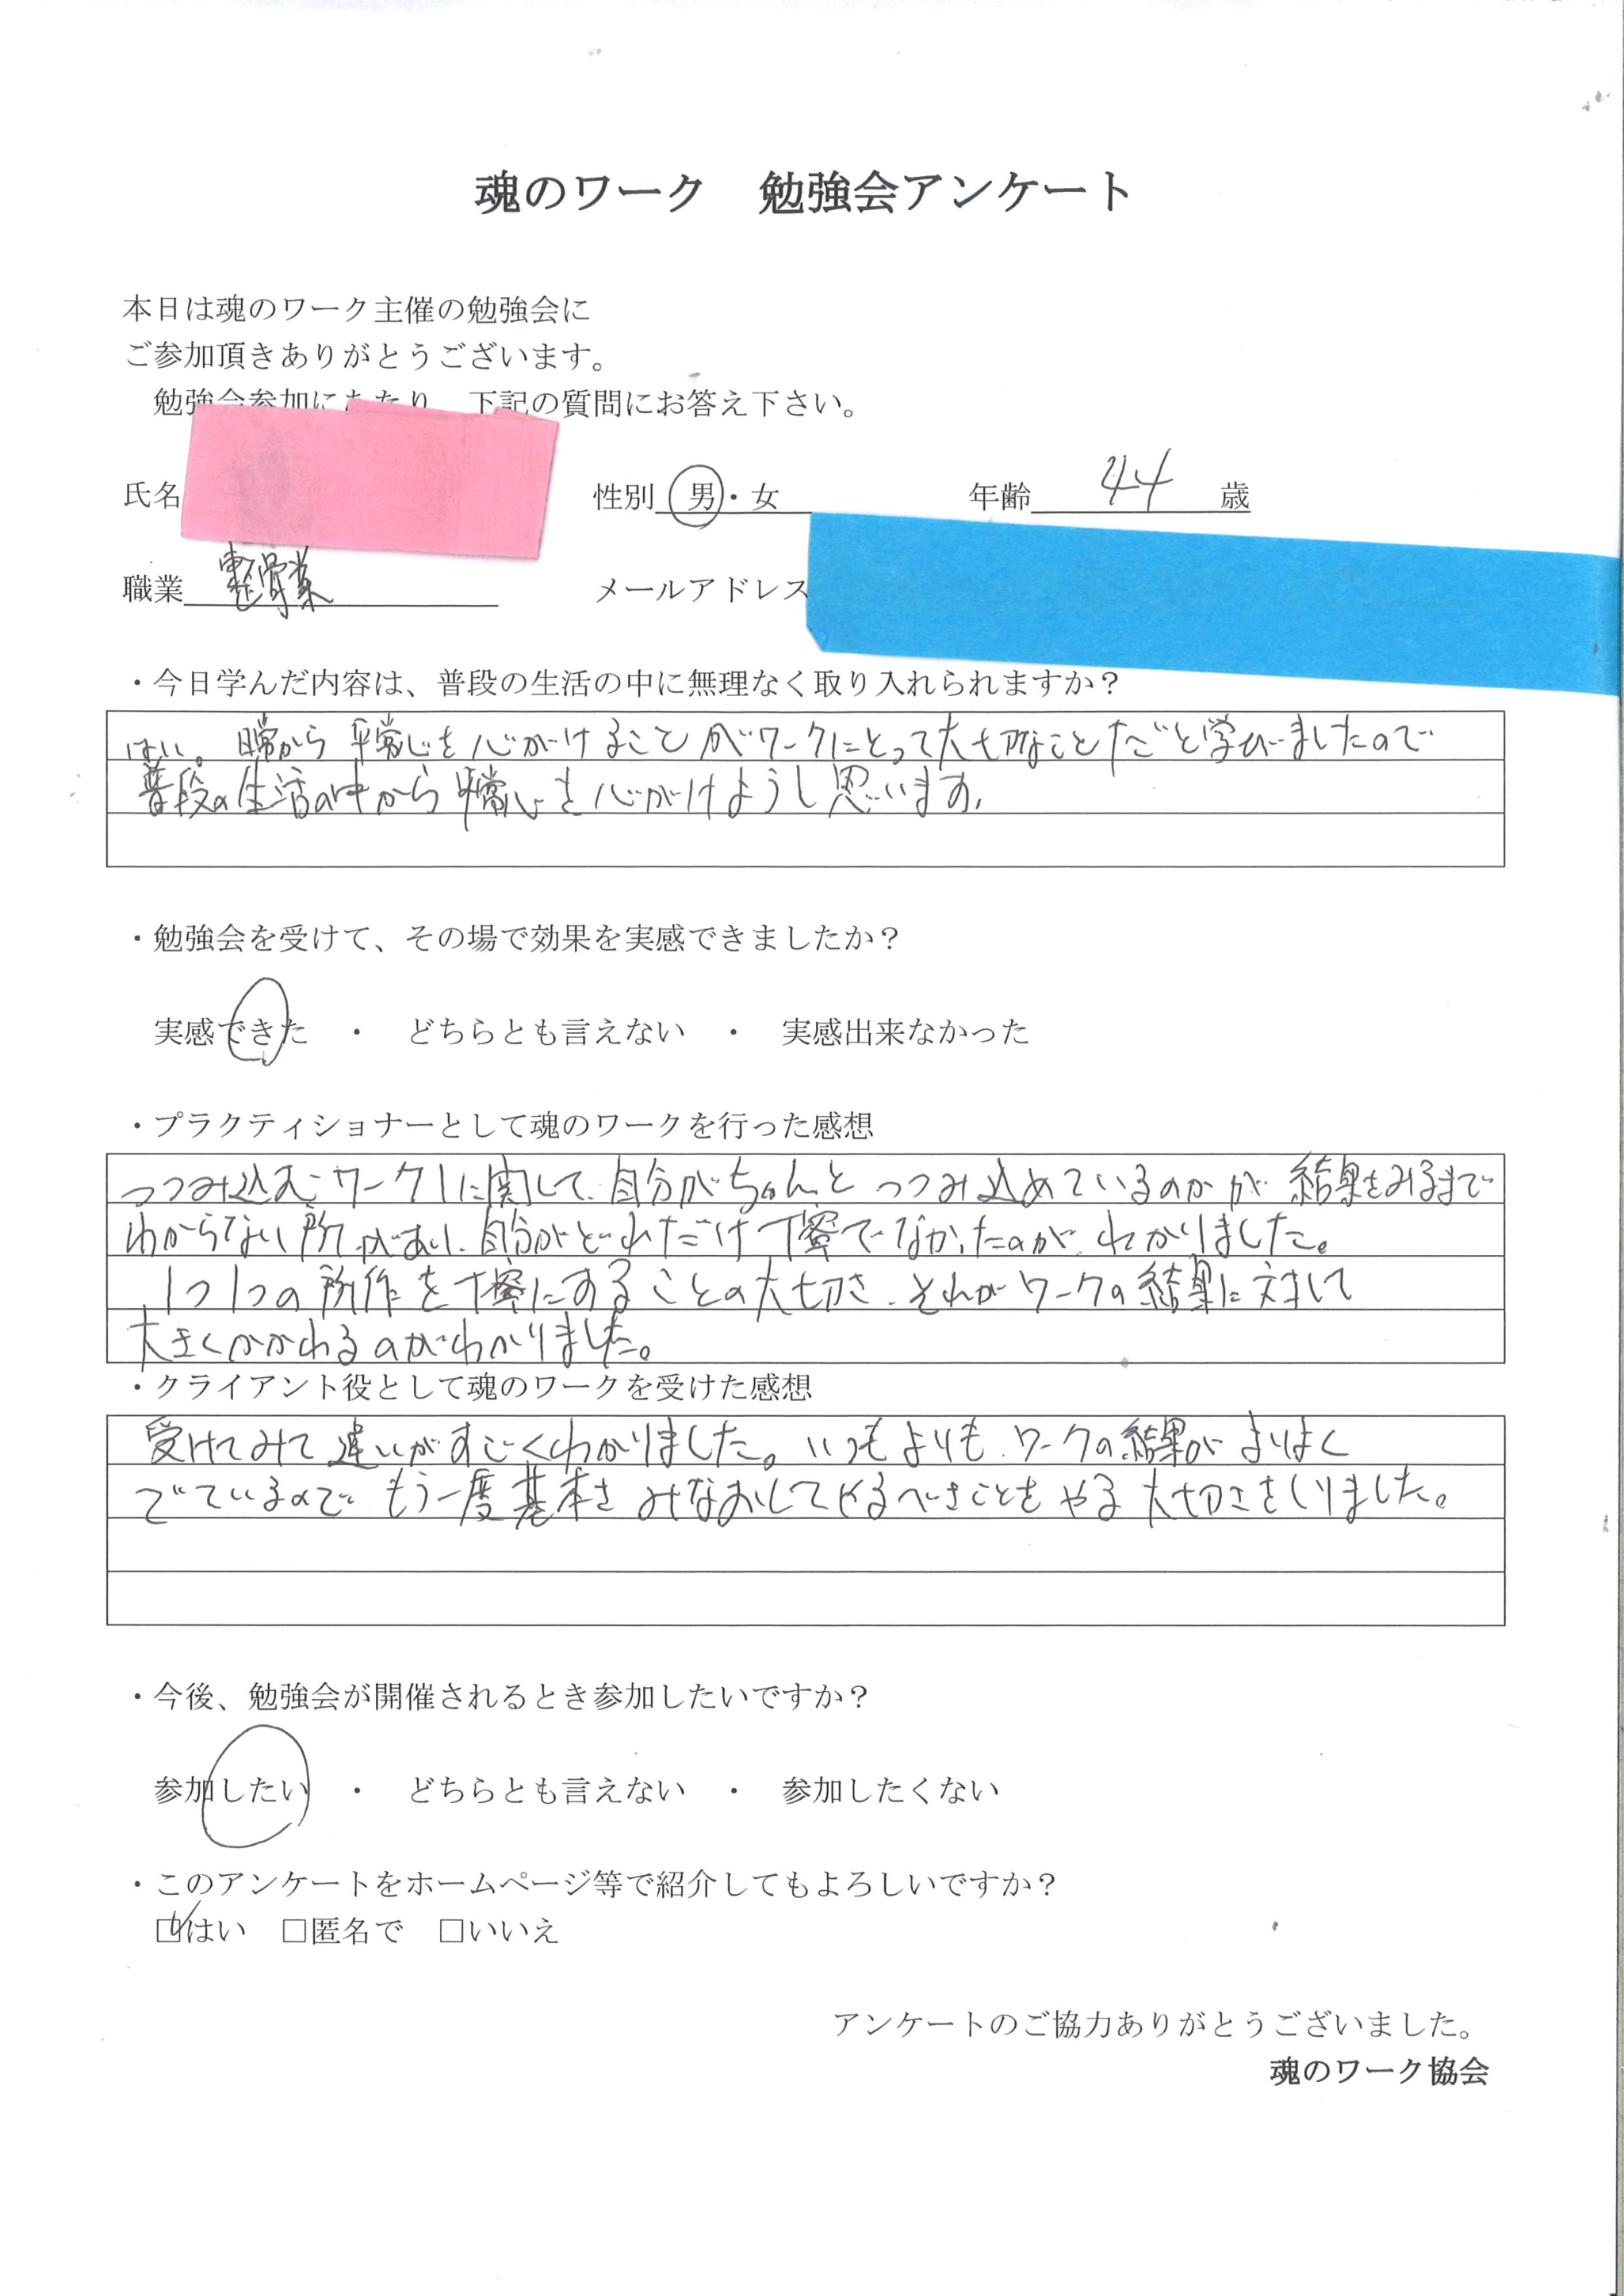 魂のワーク　勉強会アンケート
本日は魂のワーク主催の勉強会に
ご参加頂きありがとうございます。
勉強会参加にあたり　下記の質問にお答え下さい。
氏名　性別　男・女　年齢　44　歳
職業　整骨業　メールアドレス
・今日学んだ内容は、普段の生活の中に無理なく取り入れられますか？
はい。日常から平常心を心がけることがワークにとって大切なことだと学びましたので
普段の生活の中から平常心を心がけようと思います。
・勉強会を受けて、その場で効果を実感できましたか？
実感できた　・　どちらとも言えない　・　実感出来なかった
・プラクティショナーとして魂のワークを行った感想
つつみ込むワーク1に関して、自分がちゃんとつつみ込めているのかが結果をみるまで
わからない所があり、自分がどれだけ丁寧でなかったのが、わかりました。
1つ1つの所作を丁寧にすることの大切さ、それがワークの結果に対して
大きくかかわるのがわかりました。
・クライアント役として魂のワークを受けた感想
受けてみて違いがすごくわかりました。いつもよりも、ワークの結果がよりよく
でているので　もう一度基本をみなおしてやるべきことをやる大切さをしりました。
・今後、勉強会が開催されるとき参加したいですか？
参加したい　・　どちらとも言えない　・　参加したくない
・このアンケートをホームページ等で紹介してもよろしいですか？
☑はい　□匿名で　□いいえ
アンケートのご協力ありがとうございました。
魂のワーク協会